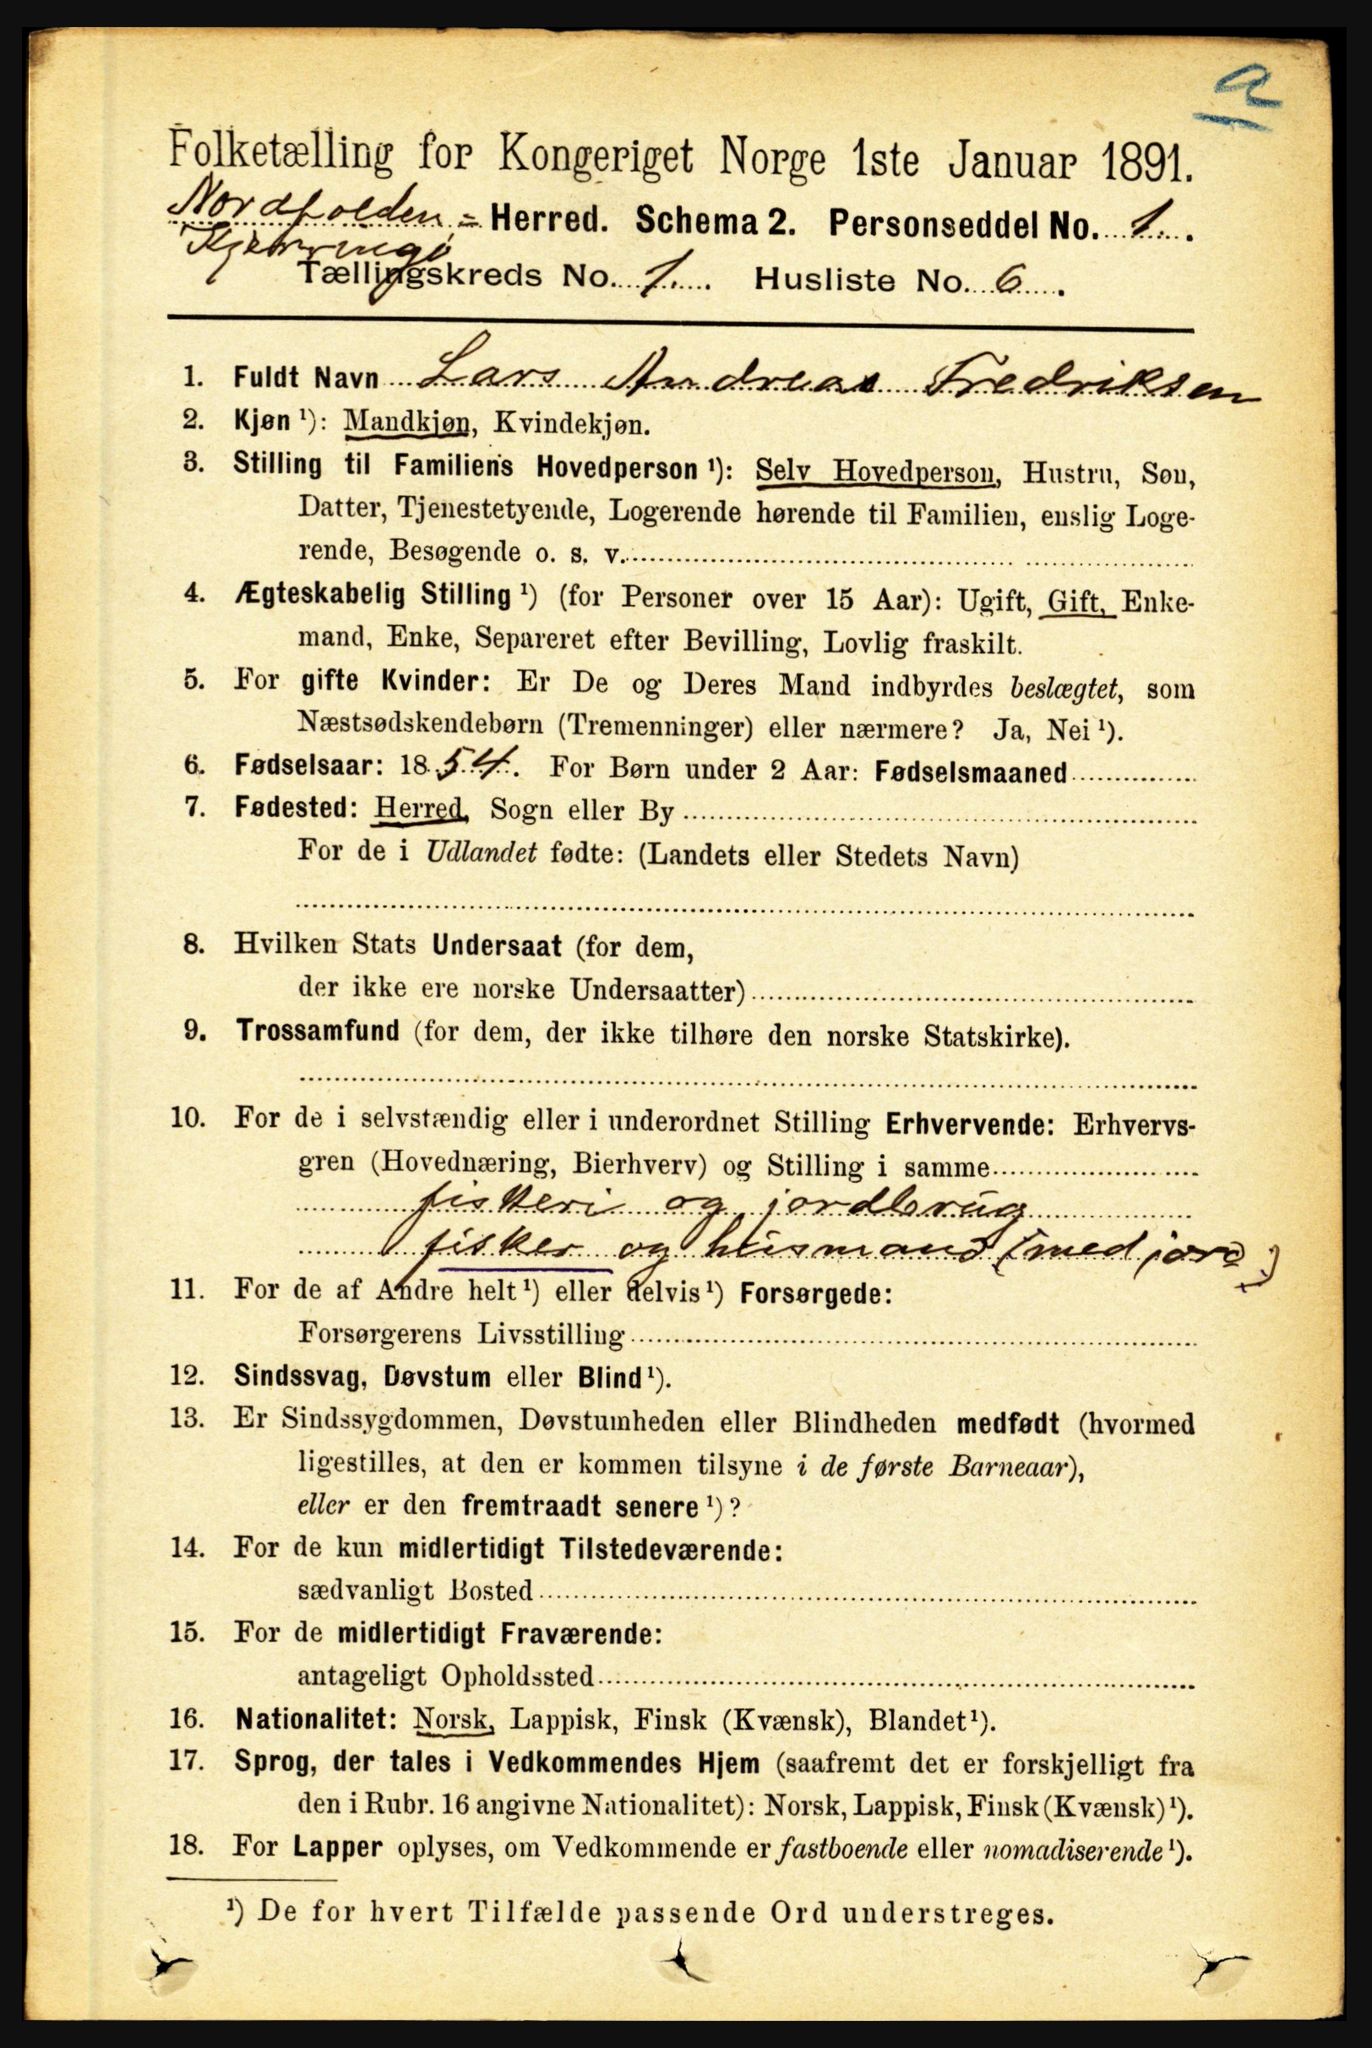 a
Folketælling for Kongeriget Norge 1ste Januar 1891.
Nordfolden = Herred. Schema 2. Personseddel No. 1.
Kjerringø
Tællingskreds No. 1. Husliste No. 6.
1. Fuldt Navn Lars Andreas Fredriksen
2. Kjøn ¹): Mandkjøn, Kvindekjøn.
3. Stilling til Familiens Hovedperson ¹): Selv Hovedperson, Hustru, Søn,
Datter, Tjenestetyende, Logerende hørende til Familien, enslig Loge-
rende, Besøgende o. s. v.
4. Ægteskabelig Stilling ¹) (for Personer over 15 Aar): Ugift, Gift, Enke-
mand, Enke, Separeret efter Bevilling, Lovlig fraskilt.
5. For gifte Kvinder: Er De og Deres Mand indbyrdes beslægtet, som
Næstsødskendebørn (Tremenninger) eller nærmere? Ja, Nei ¹).
6. Fødselsaar: 1854. For Børn under 2 Aar: Fødselsmaaned
7. Fødested: Herred, Sogn eller By
For de i Udlandet fødte: (Landets eller Stedets Navn)
8. Hvilken Stats Undersaat (for dem,
der ikke ere norske Undersaatter)
9. Trossamfund (for dem, der ikke tilhøre den norske Statskirke).
10. For de i selvstændig eller i underordnet Stilling Erhvervende: Erhvervs-
gren (Hovednæring, Bierhverv) og Stilling i samme
fiskeri og jordbrug
fisker og husmand (med jord)
11. For de af Andre helt ¹) eller delvis ¹) Forsørgede:
Forsørgerens Livsstilling
12. Sindssvag, Døvstum eller Blind ¹).
13. Er Sindssygdommen, Døvstumheden eller Blindheden medfødt (hvormed
ligestilles, at den er kommen tilsyne i de første Barneaar),
eller er den fremtraadt senere ¹)?
14. For de kun midlertidigt Tilstedeværende:
sædvanligt Bosted
15. For de midlertidigt Fraværende:
antageligt Opholdssted
16. Nationalitet: Norsk, Lappisk, Finsk (Kvænsk), Blandet ¹).
17. Sprog, der tales i Vedkommendes Hjem (saafremt det er forskjelligt fra
den i Rubr. 16 angivne Nationalitet): Norsk, Lappisk, Finsk (Kvænsk) ¹).
18. For Lapper oplyses, om Vedkommende er fastboende eller nomadiserende ¹).
¹) De for hvert Tilfælde passende Ord understreges.